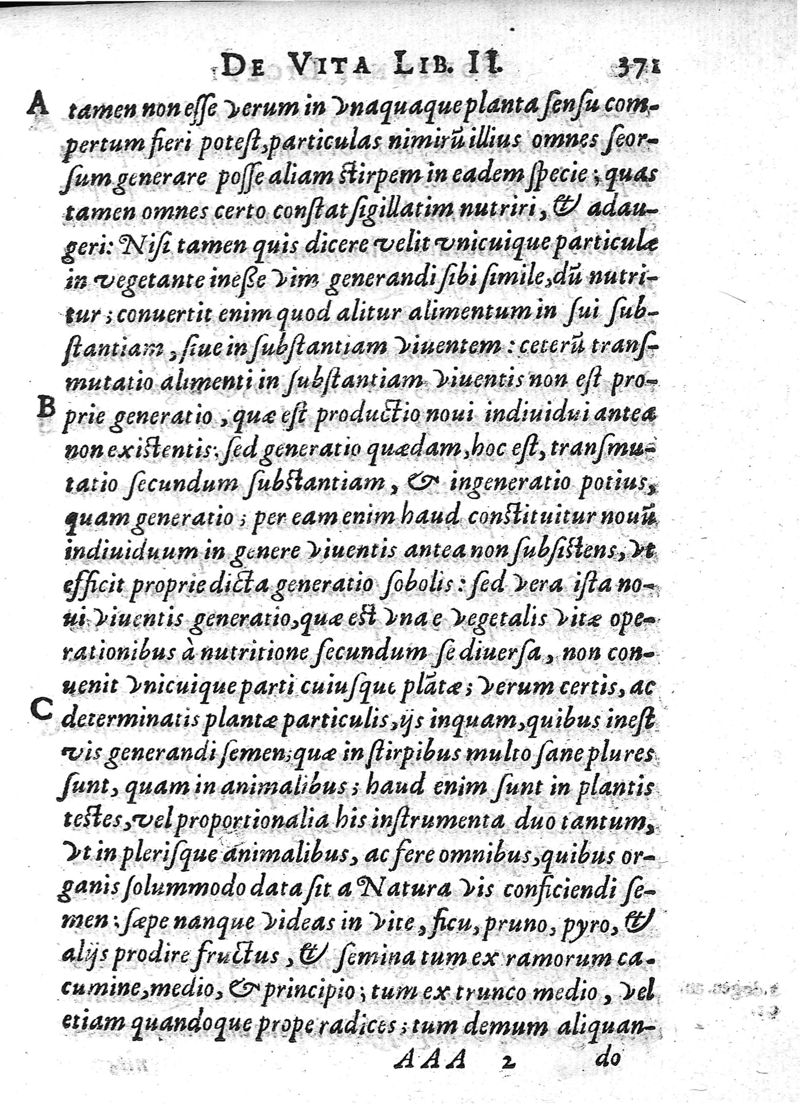 DE VITA LIB. II. 371
A tamen non eſſe verum in vnaquaque planta ſenſu com-
pertum fieri poteſt, particulas nimirũ illius omnes ſeor-
ſum generare poſſe aliam ſtirpem in eadem ſpecie; quas
tamen omnes certo conſtat ſigillatim nutriri, & adau-
geri: Niſi tamen quis dicere velit vnicuique particulæ
in vegetante ineſſe vim generandi ſibi ſimile, dũ nutri-
tur; conuertit enim quod alitur alimentum in ſui ſub-
ſtantiam, ſiue in ſubſtantiam viuentem: ceterũ tranſ-
mutatio alimenti in ſubſtantiam viuentis non eſt pro-
B prie generatio, quæ eſt productio noui indiuidui antea
non exiſtentis: ſed generatio quædam, hoc eſt, tranſmu-
tatio ſecundum ſubſtantiam, & ingeneratio potius,
quam generatio; per eam enim haud conſtituitur nouũ
indiuiduum in genere viuentis antea non ſubſiſtens, vt
efficit proprie dicta generatio ſobolis: ſed vera iſta no-
ui viuentis generatio, quæ eſt vna e vegetalis vitæ ope-
rationibus à nutritione ſecundum ſe diuerſa, non con-
uenit vnicuique parti cuiuſque plãtæ; verum certis, ac
C determinatis plantæ particulis, ijs inquam, quibus ineſt
vis generandi ſemen; quæ in ſtirpibus multo ſane plures
ſunt, quam in animalibus; haud enim ſunt in plantis
teſtes, vel proportionalia his inſtrumenta duo tantum,
vt in pleriſque animalibus, ac fere omnibus, quibus or-
ganis ſolummodo data ſit a Natura vis conficiendi ſe-
men: ſæpe nanque videas in vite, ficu, pruno, pyro, &
alijs prodire fructus, & ſemina tum ex ramorum ca-
cumine, medio, & principio; tum ex trunco medio, vel
etiam quandoque prope radices; tum demum aliquan-
AAA 2 do